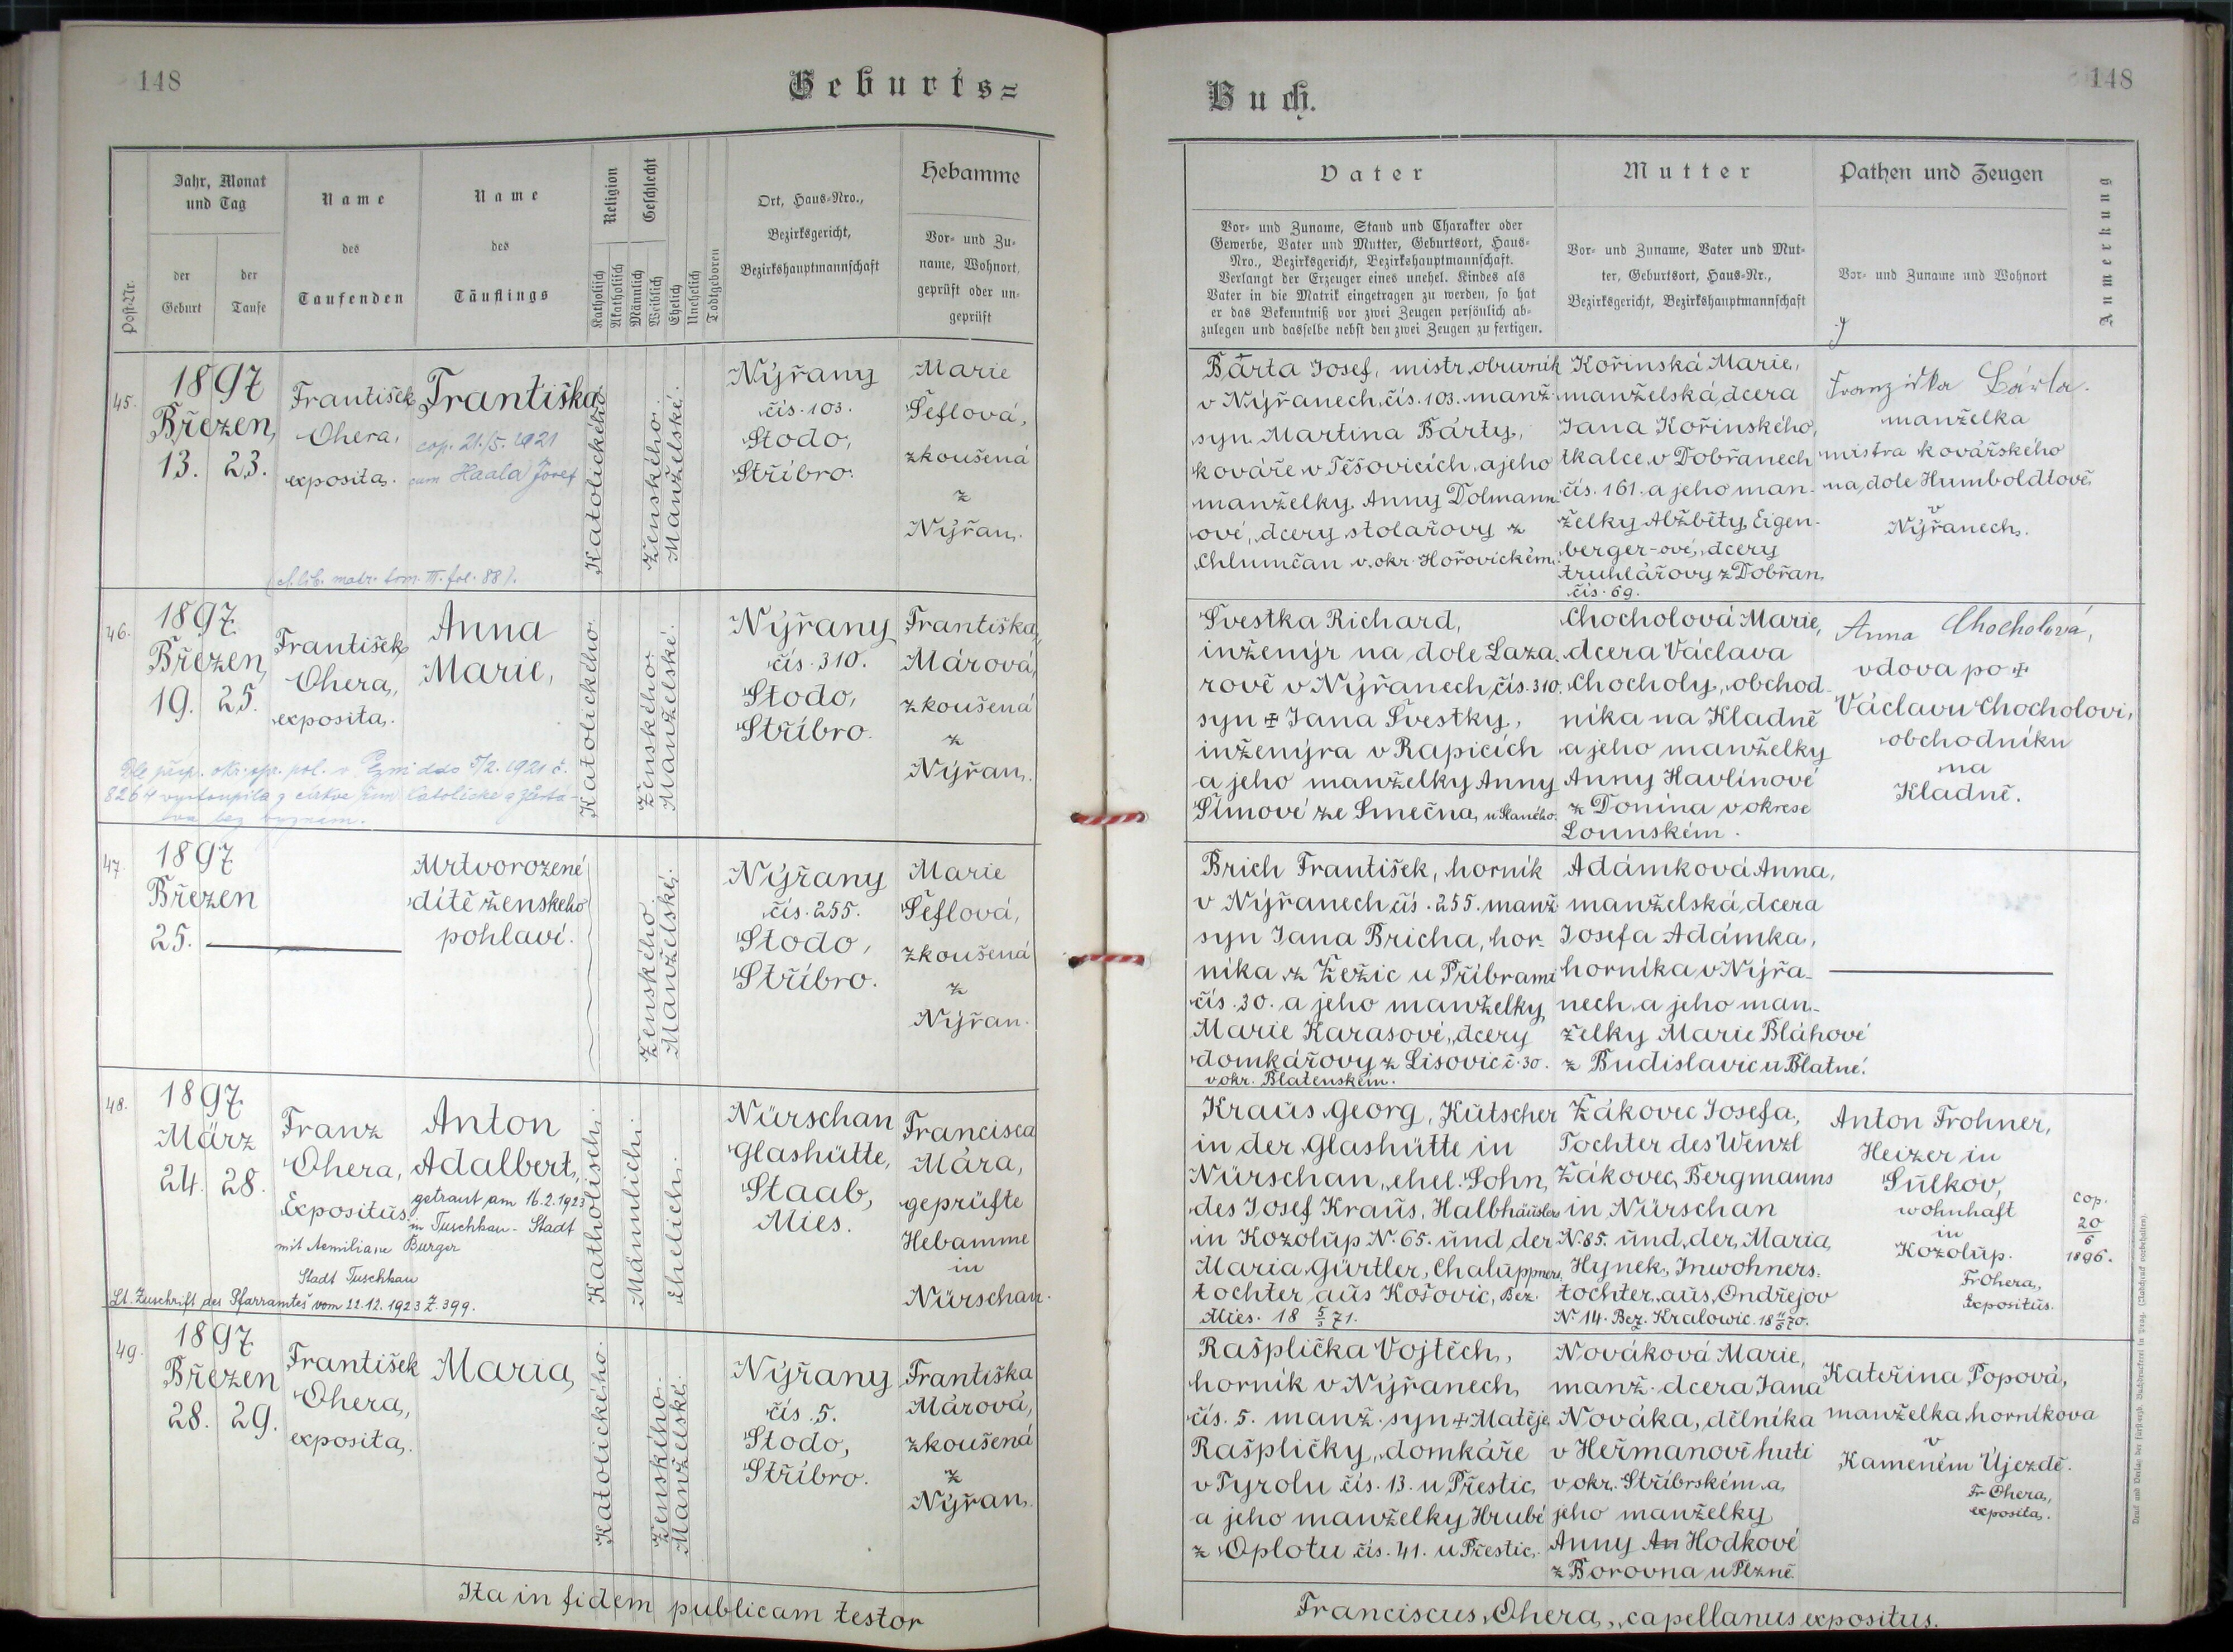 148
Geburts=
Jahr, Monat
und Tag
Name
des
Taufenden
Name
des
Täuflings
Religion
Geschlecht
Ort, Haus-Nro.,
Bezirksgericht,
Bezirkshauptmannschaft
Hebamme
Vor- und Zu-
name, Wohnort,
geprüft oder un-
geprüft
Post-Nr.
der
Geburt
der
Taufe
Katholisch
Akatholisch
Männlich
Weiblich
Ehelich
Unehelich
Todtgeboren
45.
1897
Březen,
13. 23.
František
Ohera,
exposita.
Františka
cop. 21./5. 1921
cum Haala Josef
Katolického
Ženského.
Manželské.
Nýřany
čís. 103.
Stodo,
Stříbro.
Marie
Šeflová,
zkoušená
z
Nýřan.
(cf. lib. matr. tom. III. fol. 88).
46.
1897
Březen,
19. 25.
František
Ohera,
exposita.
Anna
Marie,
Katolického.
Ženského.
Manželské.
Nýřany
čís. 310.
Stodo,
Stříbro.
Františka
Márová,
zkoušená
z
Nýřan.
Dle příp. okr. spr. pol. v Plzni ddo 5/2. 1921 č.
8264 vystoupila z církve řím. katolické a zůstá-
vá bez vyznám.
47.
1897
Březen
25.
Mrtvorozené
dítě ženského
pohlaví.
Ženského.
Manželské.
Nýřany
čís. 255.
Stodo,
Stříbro.
Marie
Šeflová,
zkoušená
z
Nýřan.
48.
1897
März
24. 28.
Franz
Ohera,
Expositus
Anton
Adalbert,
getraut am 16.2.1923
in Tuschkau-Stadt
mit Aemiliane Burger
Stadt Tuschkau
Lt. Zuschrift des Pfarramtes vom 22.12.1923 Z. 399.
Katholisch.
Männlich.
Ehelich.
Nürschan
Glashütte,
Staab,
Mies.
Francisca
Mára,
geprüfte
Hebamme
in
Nürschan.
49.
1897
Březen
28. 29.
František
Ohera,
exposita.
Maria
Katolického.
Ženského.
Manželské.
Nýřany
čís. 5.
Stodo,
Stříbro.
Františka
Márová,
zkoušená
z
Nýřan.
Ita in fidem publicam testor
Buch.
148
Vater
Vor- und Zuname, Stand und Charakter oder
Gewerbe, Vater und Mutter, Geburtsort, Haus-
Nro., Bezirksgericht, Bezirkshauptmannschaft.
Verlangt der Erzeuger eines unehel. Kindes als
Vater in die Matrik eingetragen zu werden, so hat
er das Bekenntniß vor zwei Zeugen persönlich ab-
zulegen und dasselbe nebst den zwei Zeugen zu fertigen.
Mutter
Vor- und Zuname, Vater und Mut-
ter, Geburtsort, Haus-Nr.,
Bezirksgericht, Bezirkshauptmannschaft
Pathen und Zeugen
Vor- und Zuname und Wohnort
Anmerkung
Bárta Josef, mistr obuvník
v Nýřanech čís. 103. manž.
syn Martina Bárty,
kováře v Těšovicích, a jeho
manželky Anny Dolmann-
ové, dcery stolařovy z
Chlumčan v okr. Hořovickém.
Kořinská Marie,
manželská dcera
Jana Kořinského,
tkalce v Dobřanech
čís. 161. a jeho man-
želky Alžběty Eigen-
berger-ové, dcery
truhlářovy z Dobřan
čís. 69.
Franziska Bárta.
manželka
mistra kovářského
na dole Humboldtově
v
Nýřanech.
Švestka Richard,
inženýr na dole Laza-
rově v Nýřanech čís. 310.
syn ✠ Jana Švestky,
inženýra v Rapicích
a jeho manželky Anny
Šímové ze Smečna u Slaného.
Chocholová Marie,
dcera Václava
Chocholy, obchod-
níka na Kladně
a jeho manželky
Anny Havlínové
z Donína v okrese
Lounském.
Anna Chocholová,
vdova po ✠
Václavu Chocholovi,
obchodníku
na
Kladně.
Brich František, horník
v Nýřanech čís. 255. manž.
syn Jana Bricha, hor-
níka z Žežic u Příbrami
čís. 30. a jeho manželky
Marie Karasové, dcery
domkářovy z Lisovic č. 30.
v okr. Blatenském.
Adámková Anna,
manželská dcera
Josefa Adámka,
horníka v Nýřa-
nech a jeho man-
želky Marie Bláhové
z Budislavic u Blatné.
Kraus Georg, Kutscher
in der Glashütte in
Nürschan, ehel. Sohn
des Josef Kraus, Halbhäuslers
in Kozolup N. 65. und der
Maria Gürtler, Chaluppners-
tochter aus Košovic, Bez.
Mies. 18 5/3 71.
Žákovec Josefa,
Tochter des Wenzl
Žákovec, Bergmanns
in Nürschan
N. 85. und der Maria
Hynek, Inwohners-
tochter aus Ondřejov
N. 14. Bez. Kralowic. 18 11/6 70.
Anton Frohner,
Heizer in
Sulkov,
wohnhaft
in
Kozolup.
Fr Ohera,
Expositus.
cop.
20/6
1896.
Rašplička Vojtěch,
horník v Nýřanech
čís. 5. manž. syn ✠ Matěje
Rašpličky, domkáře
v Tyrolu čís. 13. u Přestic
a jeho manželky Hrubé
z Oplotu čís. 41. u Přestic.
Nováková Marie,
manž. dcera Jana
Nováka, dělníka
v Heřmanově huti
v okr. Stříbrském a
jeho manželky
Anny An Hodkové
z Borovna u Plzně.
Kateřina Popová,
manželka horníkova
v
Kameném Újezdě.
Fr Ohera,
exposita.
Franciscus Ohera, capellanus expositus.
Druck und Verlag der fürsterzb. Buchdruckerei in Prag. (Nachdruck vorbehalten).